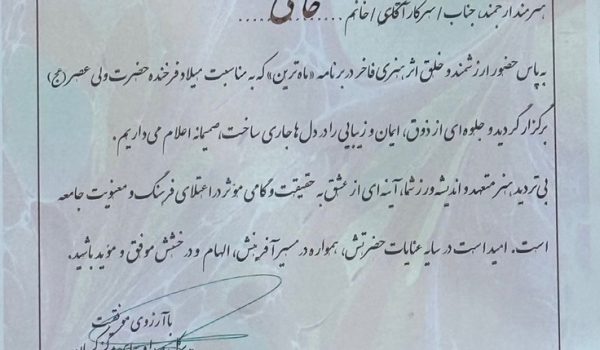 هنرمند ارجمند، جناب / سرکار آقای / خانم ...
به پاس حضور ارزشمند و خلق اثر هنری فاخر در برنامه «ماه‌ترین» که به مناسبت میلاد فرخنده حضرت ولی عصر (عج)
برگزار گردید و جلوه‌ای از ذوق، ایمان و زیبایی را در دل‌ها جاری ساخت، صمیمانه اعلام می‌داریم.
بی‌تردید، هنر متعهد و اندیشه‌ورز شما، آینه‌ای از عشق به حقیقت و گامی مؤثر در اعتلای فرهنگ و معنویت جامعه
است. امید است در سایه عنایات حضرتش، همواره در مسیر آفرینش، الهام و درخشش موفق و مؤید باشید.
با آرزوی موفقیت